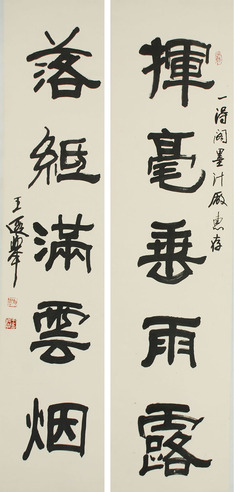 一得阁墨汁廠惠存
揮毫垂雨露
落紙滿雲烟
王遐舉